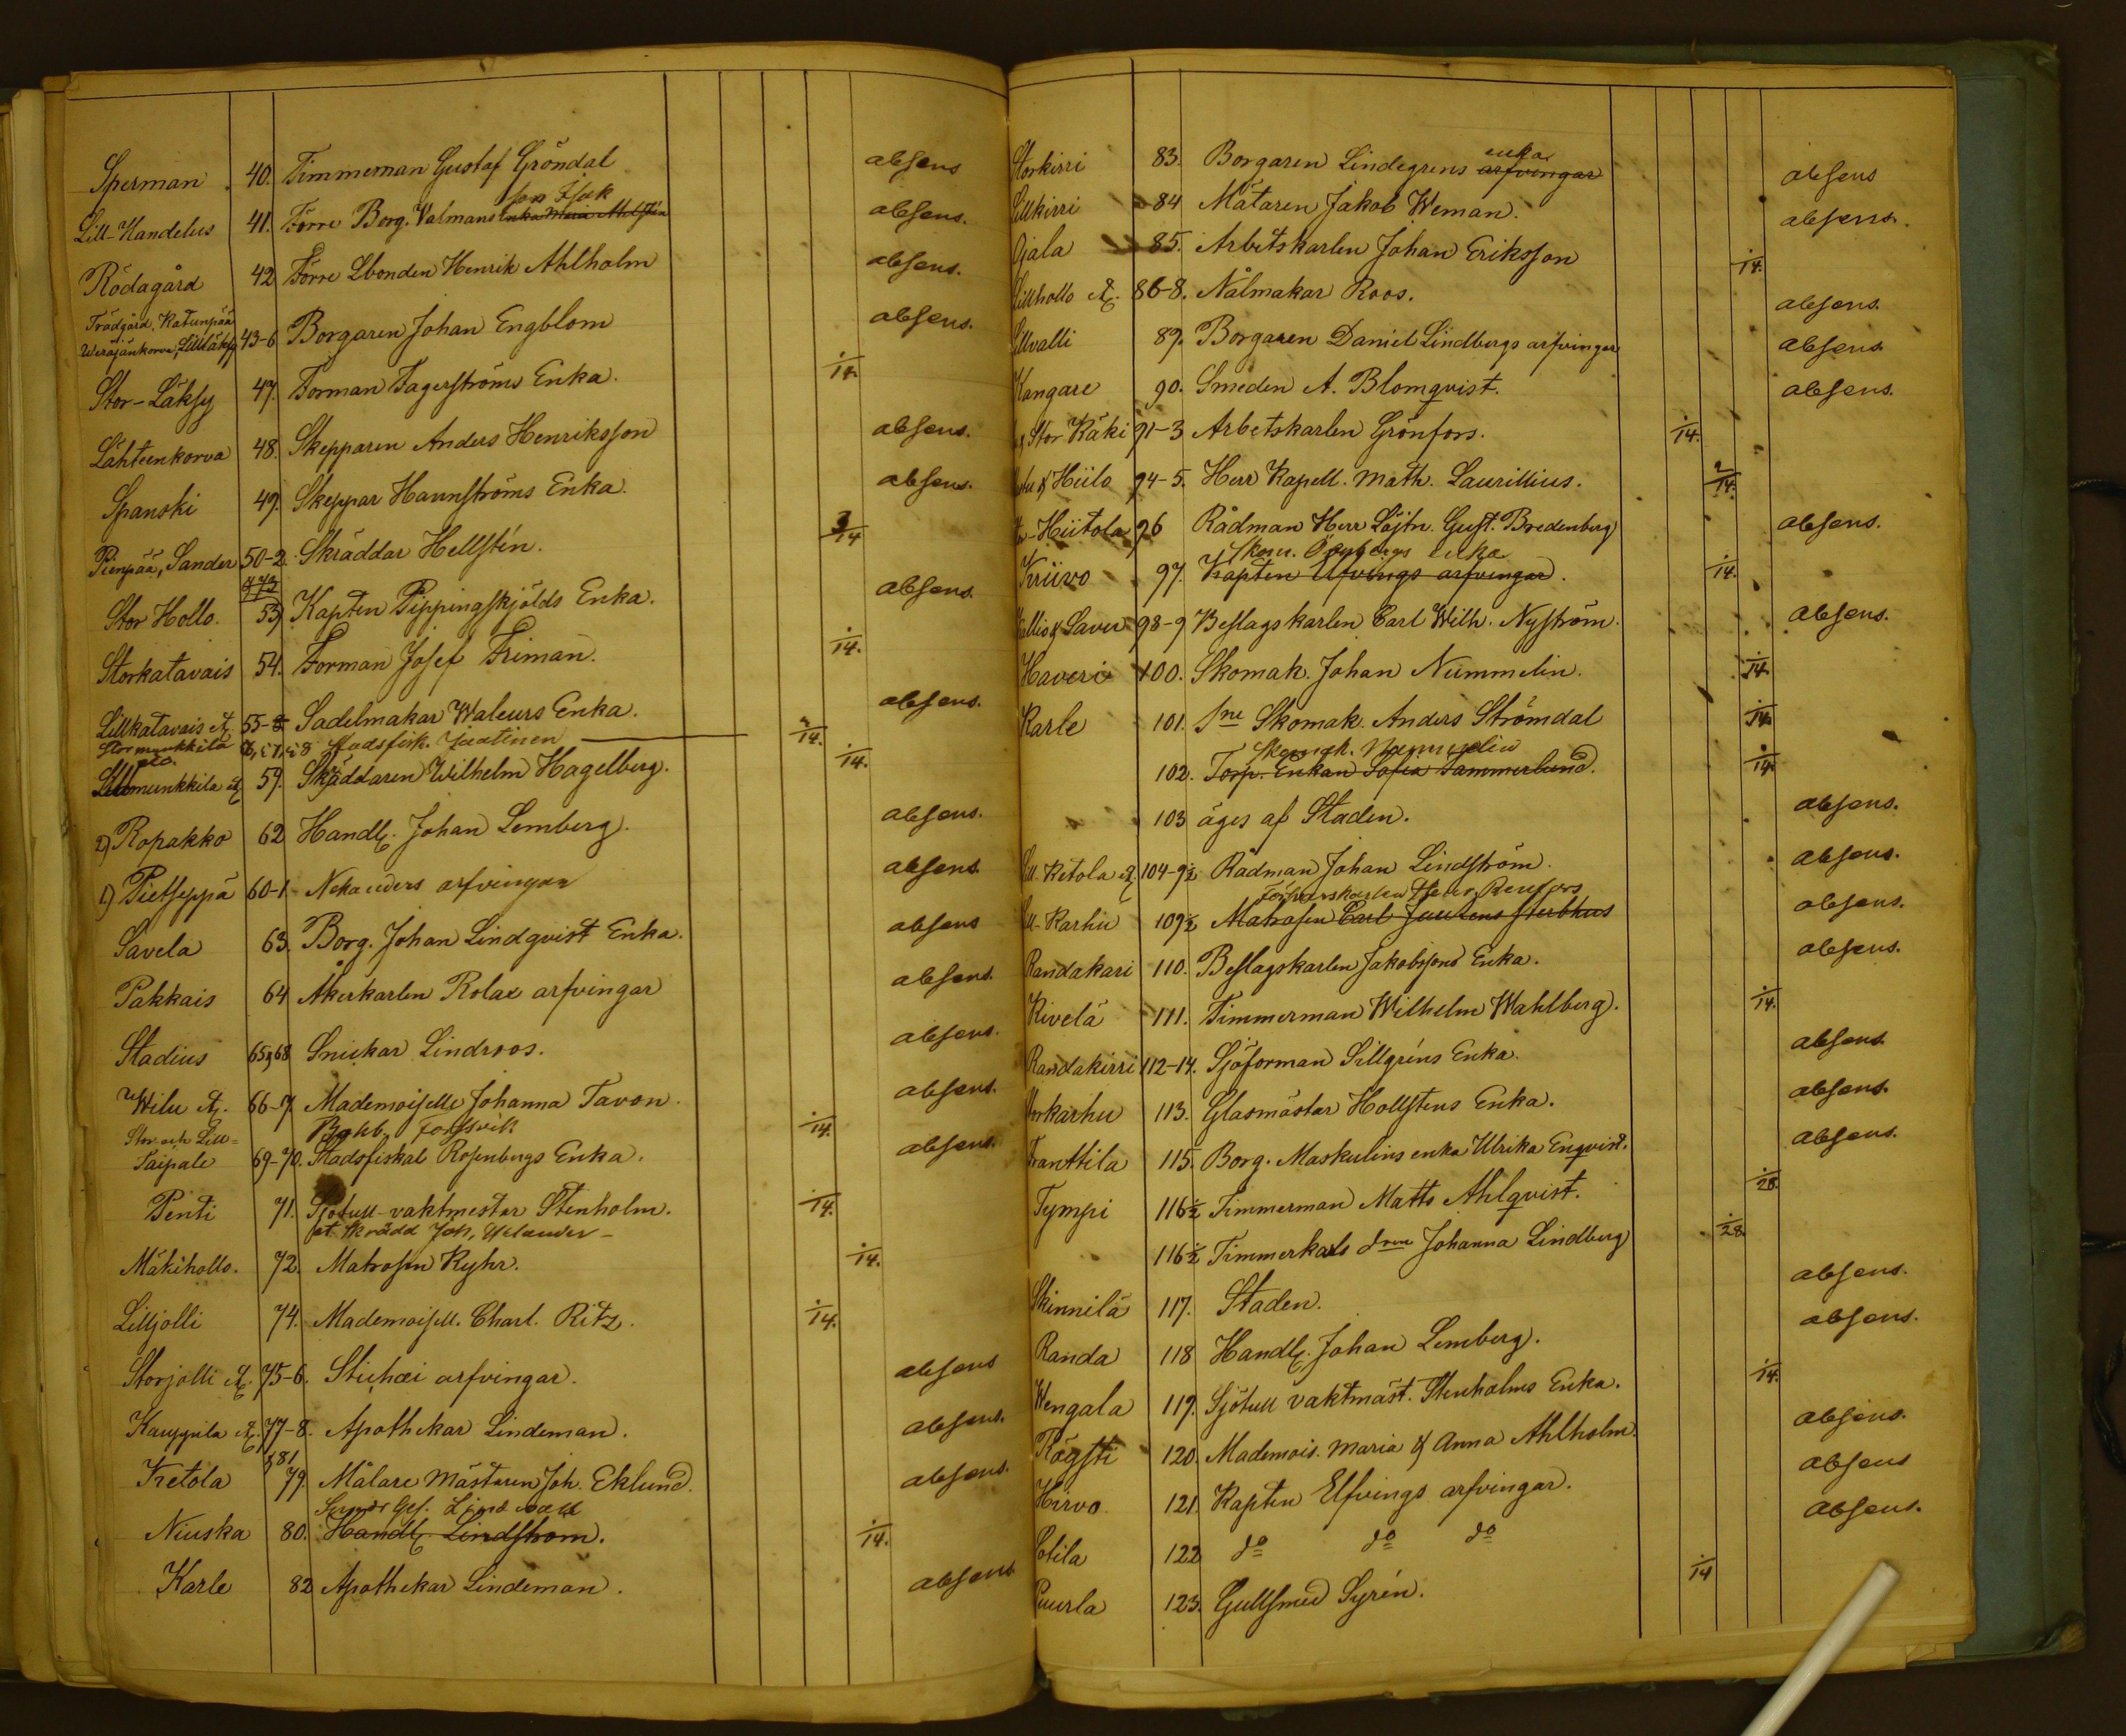 Sperman 40. Timmerman Gustaf Gröndal absens
son Isak
Lill-Handelus 41. Förre Borg. Valmans Enka Maria absens.
Rödagård 42 Förre Lbonden Henrik Ahlholm absens.
Trädgård, Katunpää
Lilläksy 43-6 Borgaren Johan Engblom absens.
Stor-Läksy 47. Forman Fagerströms Enka. 1/14.
Lähteenkorva 48. Skepparen Anders Henriksson absens.
Spanski 49. Skeppar Hannströms Enka. absens.
Pienpää, Sander 50-2. Skräddar Hellstén. 3/14
& 73
Stor Hollo. 53 Kapten Pippingskjölds Enka. absens.
Storkatavais 54. Forman Josef Friman. 1/14.
Lillkatavais &. 55- Sadelmakar Waleurs Enka. absens.
Stormunkkila 56, 57, 58 Stadsfisk. Jaatinen 2/14.
Lillmunkkila & 59. Skräddaren Wilhelm Hagelberg. 1/14.
2) Ropakko 62 Handl. Johan Lemberg. absens.
1) Pietseppä 60-1. Nekanders arfvingar absens.
Savela 63. Borg. Johan Lindqvist Enka. absens
Pakkais 64 Åkerkarlen Rolax arfvingar absens.
Stadius 65, 68 Snickar Lindroos. absens.
Wilu &. 66-7. Mademoiselle Johanna Tavon. absens.
Stor och Lill= Forssvik 1/14.
Saipale 69-70. Stadsfiskal Rosenbergs Enka. absens.
Penti 71. Sjötull-vaktmester Stenholm. 1/14.
Skrädd Joh. Helander
Mäkihollo. 72. Matrosen Ryhr. 1/14.
Lilljolli 74. Mademoisell. Charl. Ritz. 1/14.
Storjolli &. 75-6. Stichæi arfvingar. absens
Kauppila &. 77-8. Apothekar Lindeman. absens.
& 81
Ketola 79. Målare Mästaren Joh. Eklund. absens.
Niuska 80. Handl. Lindstrom. 1/14.
Karle 82 Apothekar Lindeman. absens
enka
Storkirri 83. Borgaren Lindegrens arfvingar absens
Lillkirri 84 Mätaren Jakob Weman. absens.
Ojala 85. Arbetskarlen Johan Eriksson 1/14.
Lillhollo &. 86-8. Nålmakar Roos. absens.
Lillvalli 89. Borgaren Daniel Lindbergs arfvingar absens
Kangare 90. Smeden A. Blomqvist. absens.
Stor Käki 91-3 Arbetskarlen Grönfors. 1/14.
& Hiilo 94-5. Herr Kapell. Math. Laurillius. 2/14.
Hiitola 96 Rådman Herr Löjtn. Gust. Bredenberg absens.
enka
Kriivo 97. Kapten Elfvings arfvingar. 1/14.
Kallis & Savu 98-9 Beslagskarlen Carl Wilh. Nyström. absens.
Haveri 100. Skomak. Johan Nummelin. 1/14.
Karle 101. Skomak. Anders Strömdal 1/14.
Skomak. Nummelin
102. Torp. Enkan Sofia Sammerlund. 1/14.
103 äges af Staden. absens.
Lill-Ketola &. 104-9½ Rådman Johan Lindström. absens.
Lill-Karhu 109½ Matrosen Carl sterbhus absens.
Randakari 110. Beslagskarlen Jakobssons Enka. absens.
Kivelä 111. Timmerman Wilhelm Wahlberg. 1/14.
Randakirri 112-14. Sjöforman Sillgréns Enka. absens.
Storkarhu 113. Glasmästar Hollstens Enka. absens.
Franttila 115. Borg. Maskulins enka Ulrika Enqvist. absens.
Tympi 116½ Timmerman Matts Ahlqvist. 1/28.
116½ Timmerkarls Johanna Lindberg 1/28.
Skinnilä 117. Staden. absens.
Randa 118 Handl. Johan Lemberg. absens.
Wengala 119. Sjötull vaktmäst. Stenholms Enka. 1/14.
Rägsti 120. Mademois. Maria & Anna Ahlholm. absens.
Hirvo 121. Kapten Elfvings arfvingar. absens
Sotila 122 do do do absens.
Puurla 123. Gullsmed Syrén. 1/14